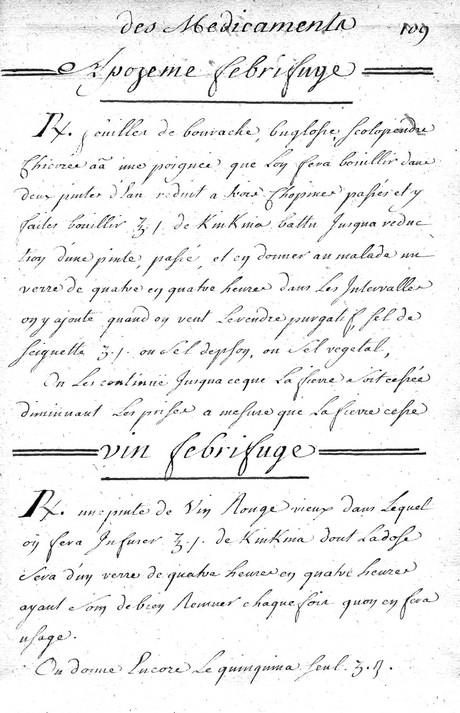 des Medicaments 109
Apozeme febrifuge
R. feuilles de bourache, buglose, scolopendre
Chicorée aã une poignée que Lon fera bouillir dans
deux pintes d'Eau reduit a trois Chopines passés et y
faites bouillir ℥.j. de KinKina battu Jusqua reduc
tion d'une pinte, passé, et en donner au malade un
verre de quatre en quatre heures dans Les Intervalles
on y ajoute quand on veut Le rendre purgatif, sel de
seignette ℥.j. ou sel depson, ou sel vegetal,
On Les continüe Jusqua ceque La fievre soit cessée
diminuant Les prises a mesure que La fievre cesse
vin febrifuge
R. une pinte de Vin Rouge vieux dans Lequel
on fera Infuser ℥.j. de KinKina dont La dose
sera d'un verre de quatre heures en quatre heures
ayant soin de bien Remuer chaque fois quon en fera
usage.
On donne Encore Le quinquina seul